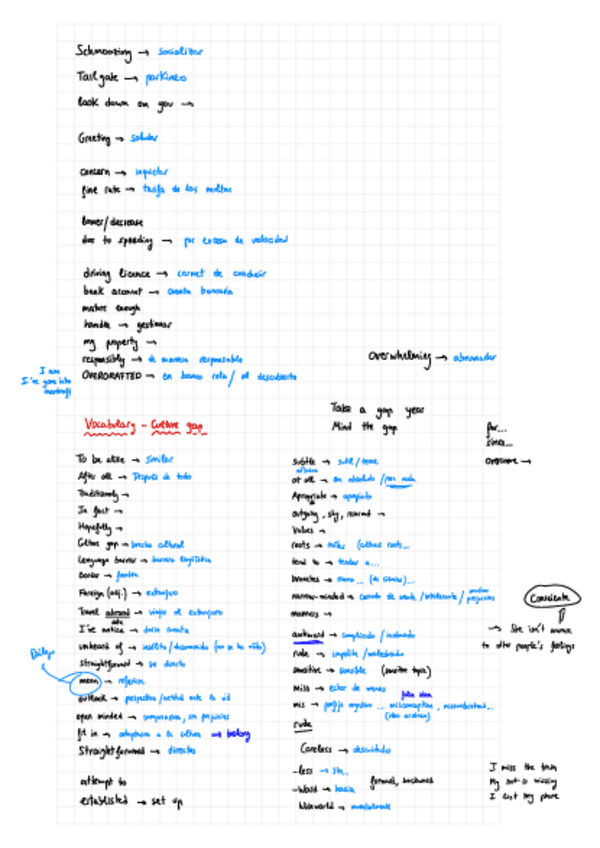 Schmoozing → socializar
Tailgate → parkineo
look down on you →
Greeting → saludar
concern → inquietar
fine rate → tarifa de las multas
lower/decrease
due to speeding → por exceso de velocidad
driving licence → carnet de conducir
bank account → cuenta bancaria
mature enough
handle → gestionar
my property →
responsibly → de manera responsable
Overwhelming → abrumador
I am
I've gone into
overdraft
OVERDRAFTED → en banca rota / al descubierto
Take a gap year
Mind the gap
for...
since...
overcome →
Vocabulary - Culture gap
To be alike → similar
After all → Después de todo
Traditionally →
In fact →
Hopefully →
Culture gap → brecha cultural
Language barrier → barrera lingüística
Border → frontera
Foreign (adj.) → extranjero
Travel abroad → viajar al extranjero
I've notice → darse cuenta
unheard of → insólito/desconocido
straightforward → se directo
mean → referirse
outlook → perspectiva/actitud ante la vid
open minded → comprensivo, sin prejuicios
fit in → adaptarse a la cultura → belong
Straightforward → directos
attempt to
established → set up
subtle → sutil / tenue
at all → en absoluto /
Apropriate → apropiado
outgoing, shy, reserved →
Values →
roots → raíces (cultural roots...
tend to → tender a...
branches → ramas ...
narrow-minded → / intolerante / prejuicios
manners →
awkward → complicado / incómodo
rude → impolite / maleducado
sensitive → sensible (sensitive topic)
miss → echar de menos
false idea
mis → prefijo negativo ... misconception, misunderstand...
rude
Careless → descuidado
-less → sin..
-Ward → hacia forward, backward
Worldwide → mundialmente
→ She isn't aware
to other people's feelings
I miss the train
I lost my phone